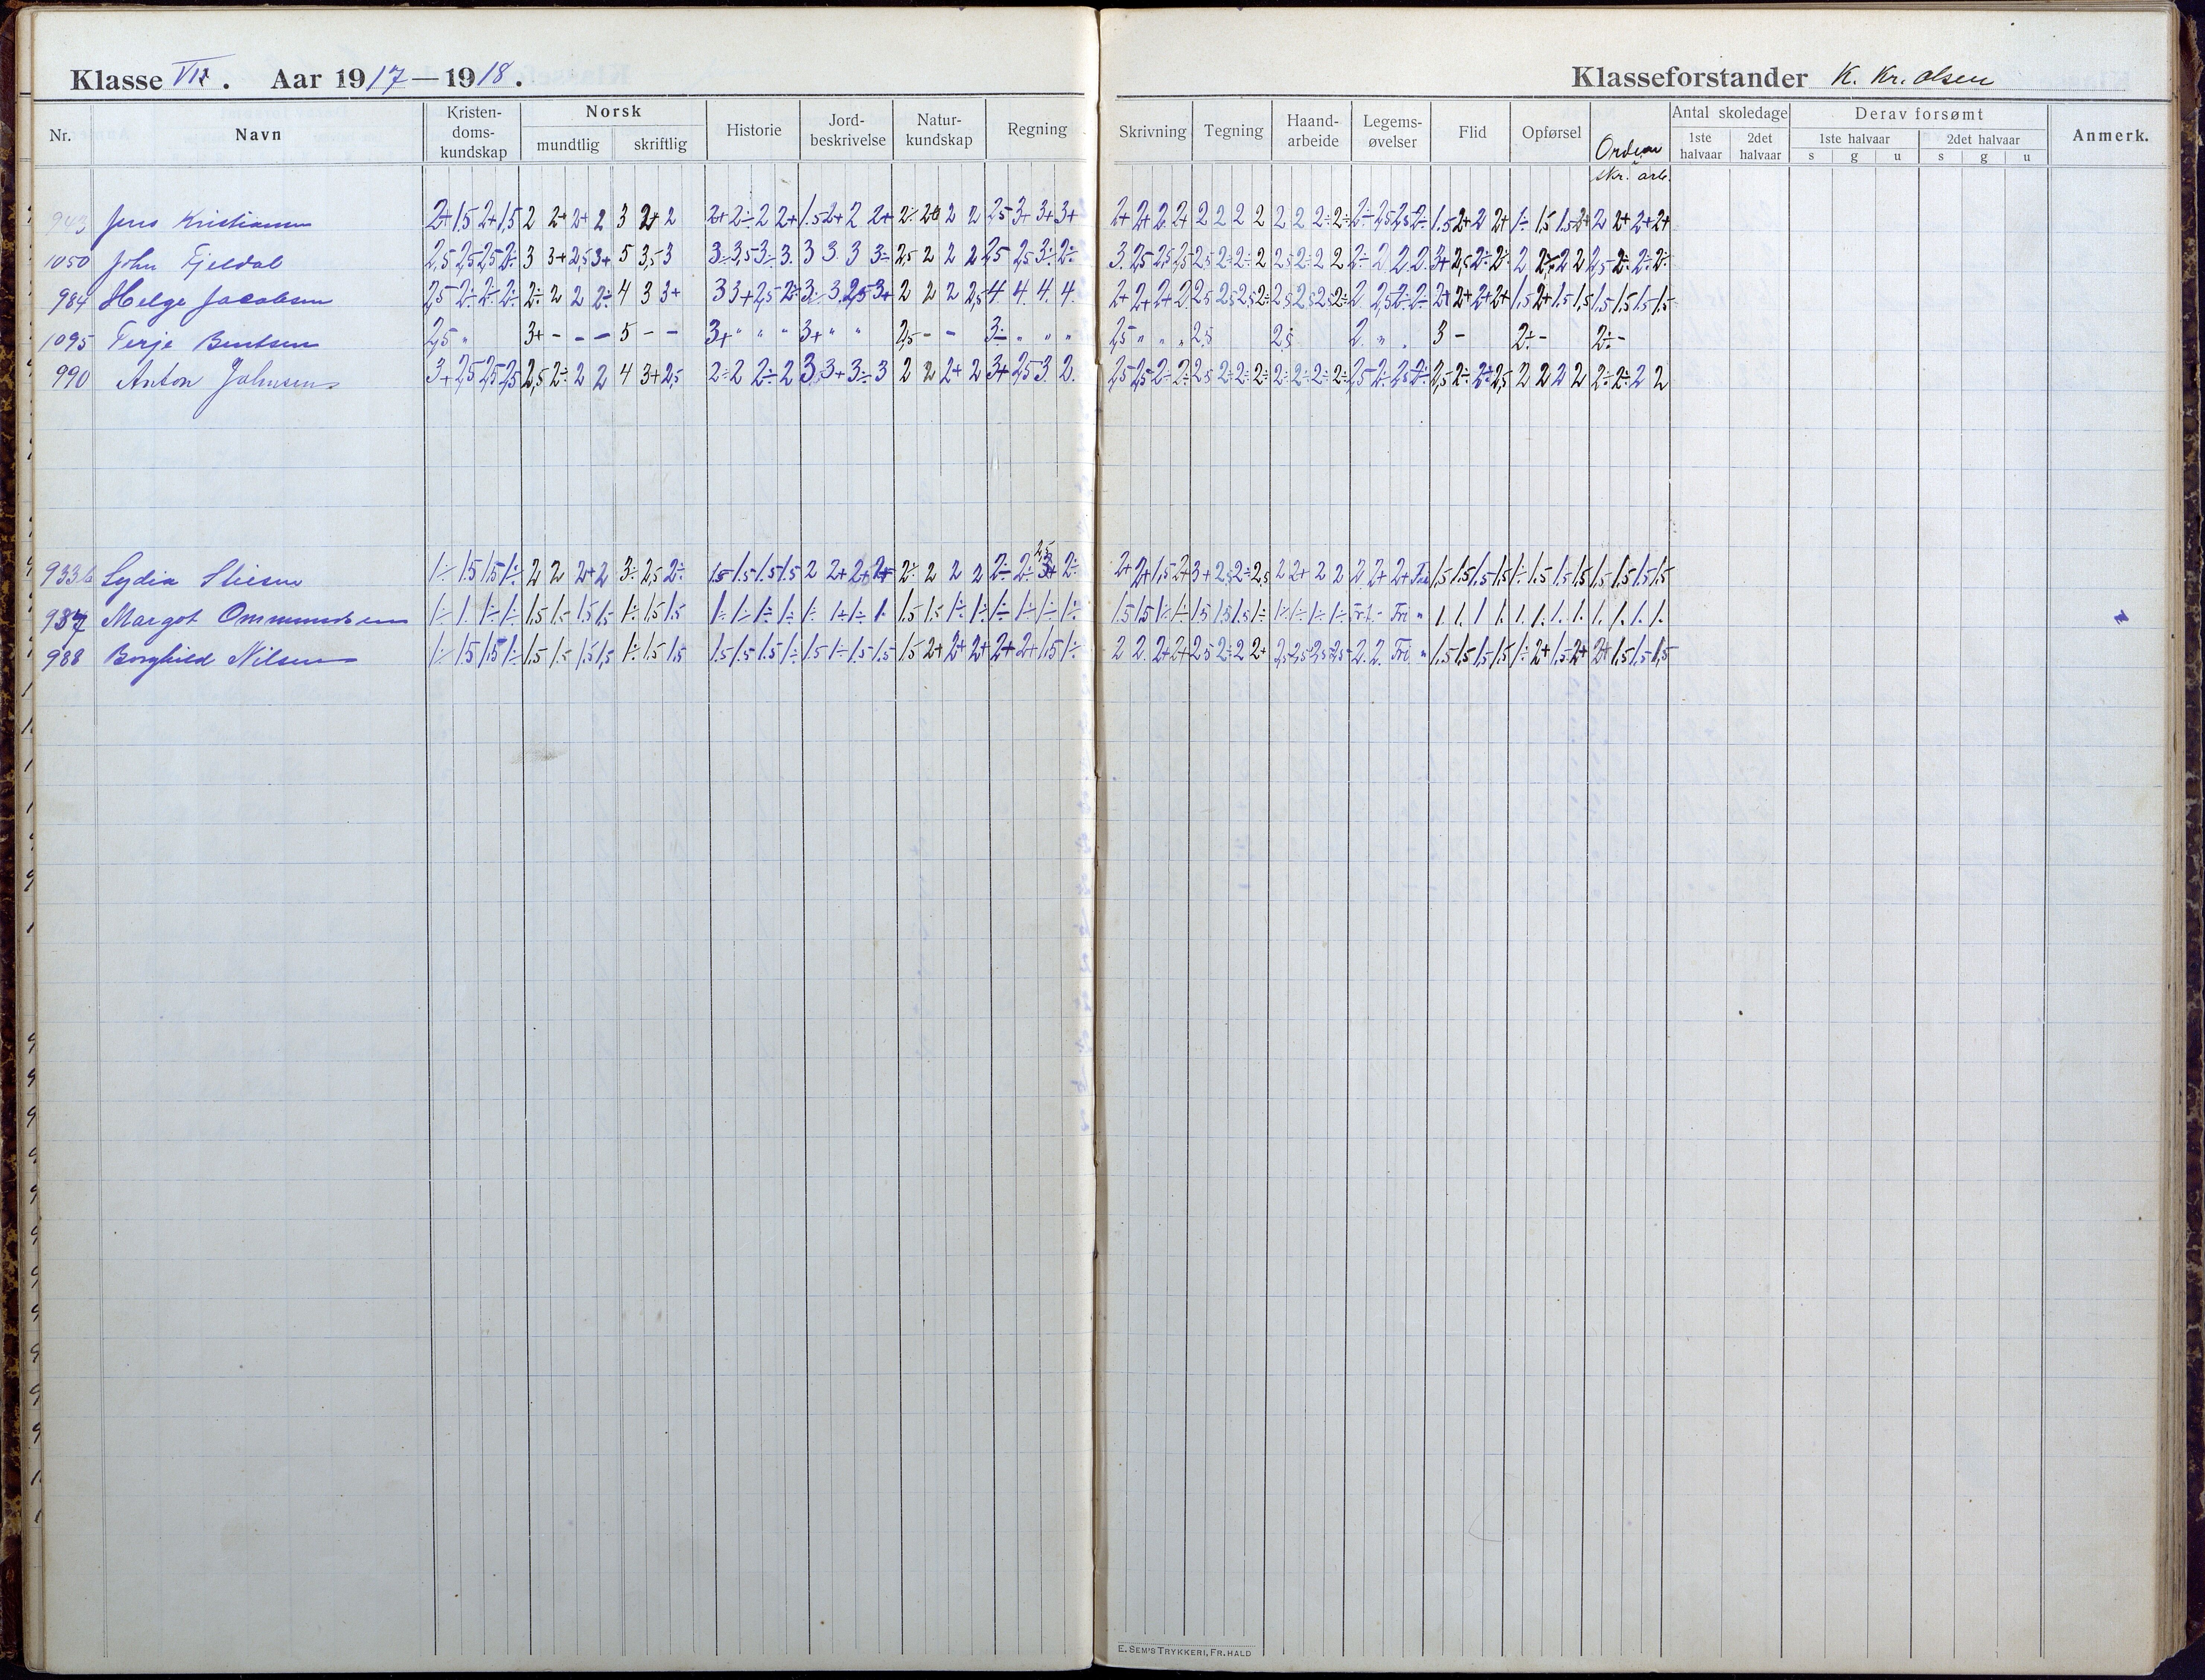 Klasse VII. Aar 1917—1918.
Klasseforstander K. Kr. Olsen
Nr. Navn Kristendoms-kundskap Norsk mundtlig skriftlig Historie Jord-beskrivelse Natur-kundskap Regning Skrivning Tegning Haand-arbeide Legems-øvelser Flid Opførsel Orden skr. arb. Antal skoledage 1ste halvaar 2det halvaar Derav forsømt 1ste halvaar s g u 2det halvaar s g u Anmerk.
943 Jens Kristiansen 2+ 1,5 2+ 1,5 2 2+ 2+ 2 3 2+ 2 2+ 2÷ 2 2+ 1.5 2+ 2 2+ 2÷ 2+ 2 2 2,5 3+ 3+ 3+ 2+ 2+ 2 2+ 2 2 2 2 2 2 2÷ 2÷ 2÷ 2,5 2,5 2÷ 1.5 2+ 2 2+ 1÷ 1,5 1.5 2+ 2 2+ 2+ 2+
1050 John Fjeldal 2,5 2,5 2,5 2÷ 3 3+ 2,5 3+ 5 3,5 3 3÷ 3,5 3÷ 3. 3 3 3 3÷ 2,5 2 2 2 2,5 2,5 3÷ 2÷ 3. 2,5 2,5 2,5 2,5 2÷ 2÷ 2 2,5 2÷ 2 2 2÷ 2 2 2 3+ 2,5 2÷ 2÷ 2 2÷ 2 2 2,5 2÷ 2÷ 2÷
984 Helge Jacobsen 2,5 2÷ 2÷ 2÷ 2÷ 2 2 2÷ 4 3 3+ 3 3+ 2,5 2÷ 3÷ 3 2,5 3+ 2 2 2 2,5 4. 4. 4. 4. 2+ 2+ 2+ 2 2,5 2,5 2,5 2÷ 2,5 2,5 2,5 2÷ 2 2,5 2÷ 2÷ 2+ 2+ 2+ 2+ 1,5 2+ 1,5 1,5 1,5 1,5 1,5 1,5
1095 Terje Bentsen 2,5 " 3+ - - - 5 - - 3+ " " " 3+ " " 2,5 - - 3÷ " " " 2,5 " " " 2,5 2,5 2 " . 3 - 2÷ - 2÷ -
990 Anton Johnsen 3+ 2,5 2,5 2,5 2,5 2÷ 2 2 4 3+ 2,5 2÷ 2 2÷ 2 3 3+ 3÷ 3 2 2 2+ 2 3+ 2,5 3 2. 2,5 2,5 2÷ 2÷ 2,5 2÷ 2÷ 2÷ 2÷ 2÷ 2÷ 2÷ 2,5 2÷ 2,5 2÷ 2,5 2÷ 2÷ 2,5 2 2 2 2 2÷ 2÷ 2 2
933b Lydia 1÷ 1.5 1.5 1÷ 2 2 2+ 2 3÷ 2,5 2÷ 1.5 1.5 1.5 1.5 2 2+ 2+ 2+ 2÷ 2 2 2 2÷ 2÷ 2,5 3+ 2÷ 2+ 2+ 1,5 2+ 3+ 2,5 2÷ 2,5 2 2+ 2 2 2 2+ 2+ Fri 1,5 1,5 1,5 1,5 1÷ 1,5 1,5 1,5 1,5 1,5 1,5 1,5
987 Margot Ommundsen 1÷ 1. 1÷ 1÷ 1,5 1,5 1,5 1,5 1÷ 1,5 1,5 1÷ 1÷ 1÷ 1÷ 1÷ 1+ 1÷ 1. 1,5 1,5 1÷ 1÷ 1÷ 1÷ 1÷ 1÷ 1,5 1,5 1÷ 1÷ 1,5 1,5 1,5 1÷ 1÷ 1÷ 1÷ 1÷ Fri - Fri " 1. 1. 1 1. 1. 1. 1. 1. 1. 1. 1. 1.
988 Borghild Nilsen 1÷ 1.5 1.5 1÷ 1,5 1,5 1,5 1,5 1÷ 1,5 1,5 1.5 1.5 1.5 1÷ 1.5 1÷ 1.5 1.5 1,5 2+ 2+ 2+ 2+ 2+ 1,5 1÷ 2 2 2+ 2+ 2,5 2÷ 2 2+ 2,5 2,5 2,5 2,5 2. 2. Fri " 1,5 1,5 1,5 1,5 1÷ 2+ 1,5 2+ 2+ 1,5 1,5 1,5
E. SEM'S TRYKKERI, FR.HALD